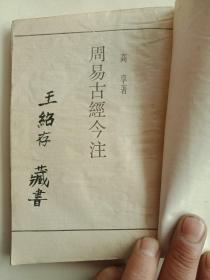 高亨著
周易古經今注
王紹存
藏書